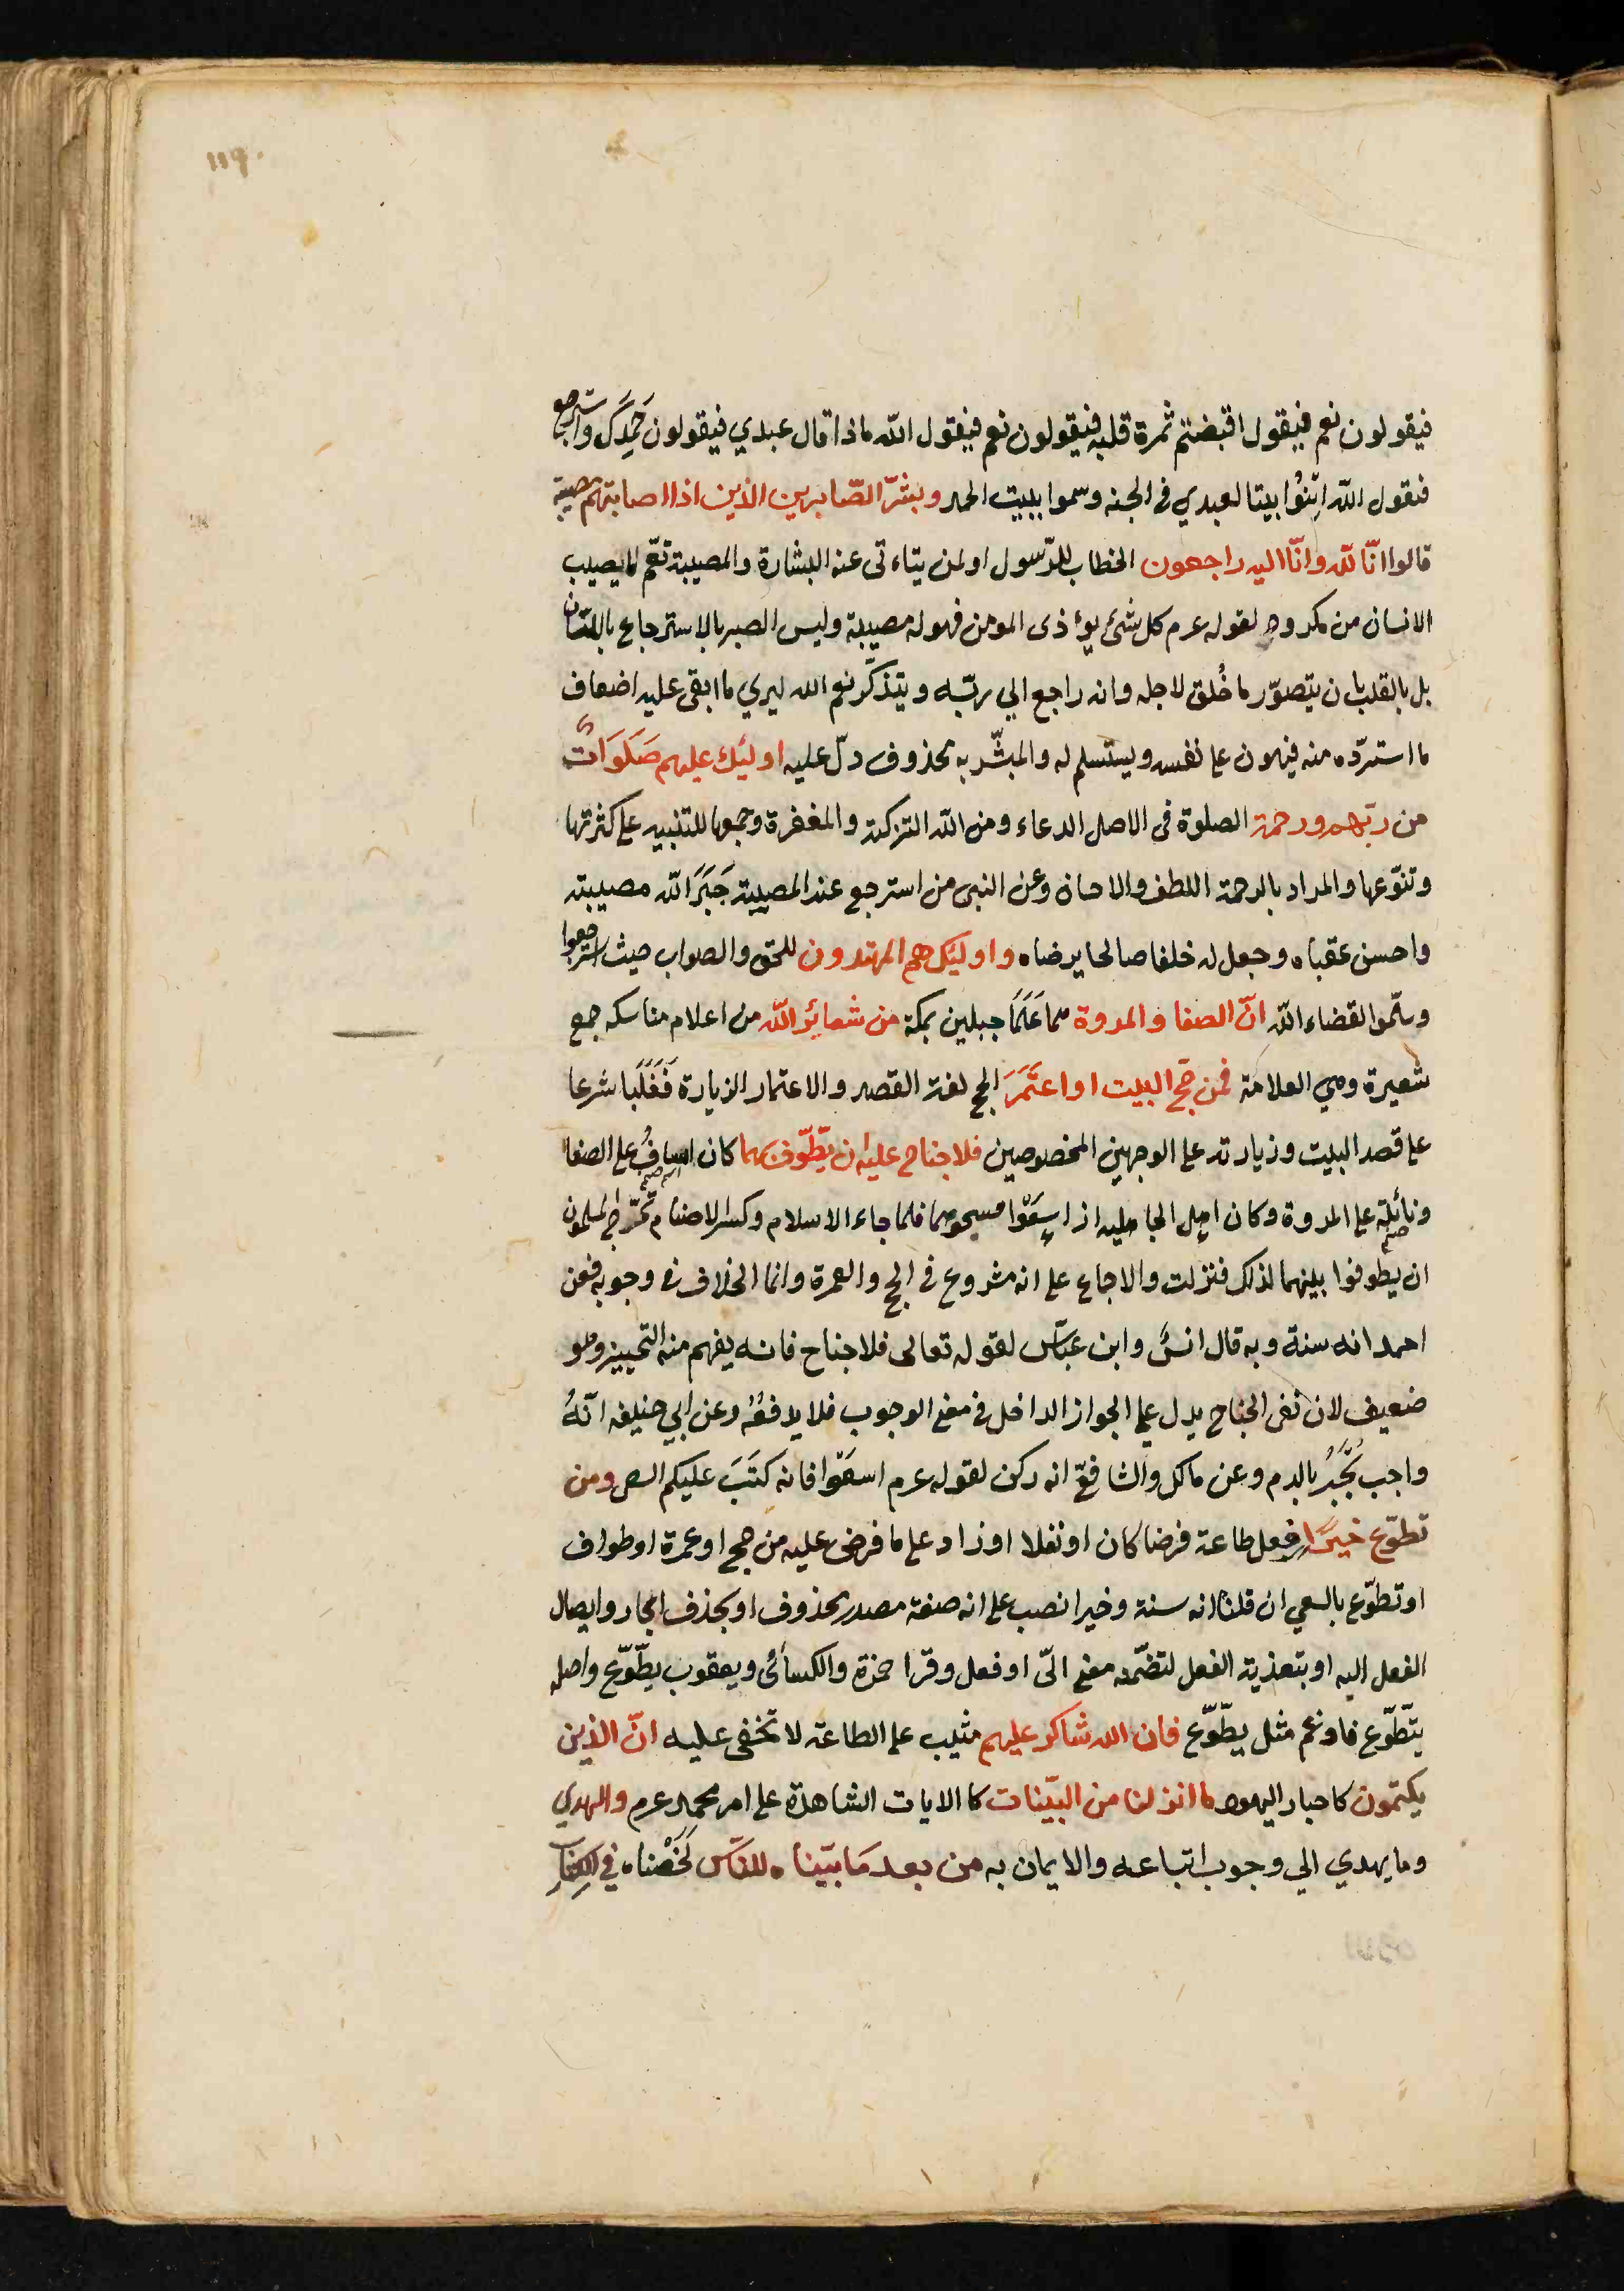 ١١٩
فيقولون نعم فيقول اقبضتم ثمرة قلبه فيقولون نعم فيقول الله ماذا قال عبدي فيقولون حَمِدَكَ واسترجع
فيقول الله ابْنُوا بيتا لعبدي في الجنه وسموا بيت الحمد وبشّر الصّابرين الذين اذا اصابتهم مصيبة
قالوا انّا لله وانّا اليه راجعون الخطاب للرّسول او لمن يتاءتى عنه البشارة والمصيبة تعّم لما يصيب
الانسان من مكروه لقوله عرم كل شئ يوءذى المومن فهو له مصيبة وليس الصبر بالاسترجاع باللسان
بل بالقلب بان يتصوّر ما خُلق لاجله وانه راجع الي ربّه ويتذكّر نعم الله ليري ما ابقى عليه اضعاف
ما استردّه منه فيهون على نفسه ويستسلم له والمبشّر به محذوف دلّ عليه اوليك عليهم صَلَوَاتٌ
من ربّهم ورحمة الصلوة فى الاصل الدعاء ومن الله التزكية والمغفرة وجمعها للتنبيه على كثرتها
وتنوّعها والمراد بالرحمة اللطف والاحسان وعن النبى من استرجع عند المصيبة جَبَرَ الله مصيبته
واحسن عقباه وجعل له خلفا صالحا يرضاه واوليك هم المهتدون للحق والصواب حيث استرجعوا
وسلّموا لقضاء الله انّ الصفا والمروة هما عَلَمَا جبلين بمكة من شعائر الله من اعلام مناسكه جمع
شعيرة وهي العلامة فمن حجّ البيت او اعتَمَرَ الحج لغة القصد والاعتمار الزيارة فَغَلَبا شرعا
على قصد البيت وزيارته على الوجهين المخصوصين فلا جناح عليه ان يطّوّف بهما كان اساف على الصفا
اسم صنم
ونائلة على المروة وكان اهل الجاهليه اذا سعَوْا مسحوهما فلما جاء الاسلام وكسر الاصنام تحّرج المسلمون
صنم
ان يطوفوا بينهما لذلك فنزلت والاجماع على انه مشروع فى الحج والعمرة وانما الخلاف فى وجوبه فعن
احمد انه سنة وبه قال انسٌ وابن عبّاس لقوله تعالى فلا جناح فانه يفهم منه التخيير وهو
ضعيف لان نفى الجناح يدل على الجواز الداخل فى معنى الوجوب فلا يدفعُهُ وعن ابي حنيفه انّهُ
واجب يُجْبَرُ بالدم وعن مالك والشافعّ انه ركن لقوله عرم اسعَوْا فانه كَتَبَ عليكم السعى ومن
تطوّع خيرًا فعل طاعة فرضا كان او نفلا او زاد على ما فرض عليه من حج او عمرة او طواف
او تطوّع بالسعي ان قلنا انه سنة وخيرا نصب على انه صفة مصدر محذوف او بحذف الجار وايصال
الفعل اليه او بتعدية الفعل لتضمّنه معنى اتى او فعل وقرا حمزة والكسائى ويعقوب يطّوّع واصله
يتطّوّع فادغم مثل يطّوّع فان الله شاكر عليهم مثيب على الطاعة لا تخفى عليه انّ الذين
يكتمون كاحبار اليهود ما انزلنا من البيّنات كالايات الشاهدة على امر محمد عرم والهدي
وما يهدي الي وجوب اتباعه والايمان به من بعد مَا بيّناه للنّاس لَخَّصْناه فى الكتاب